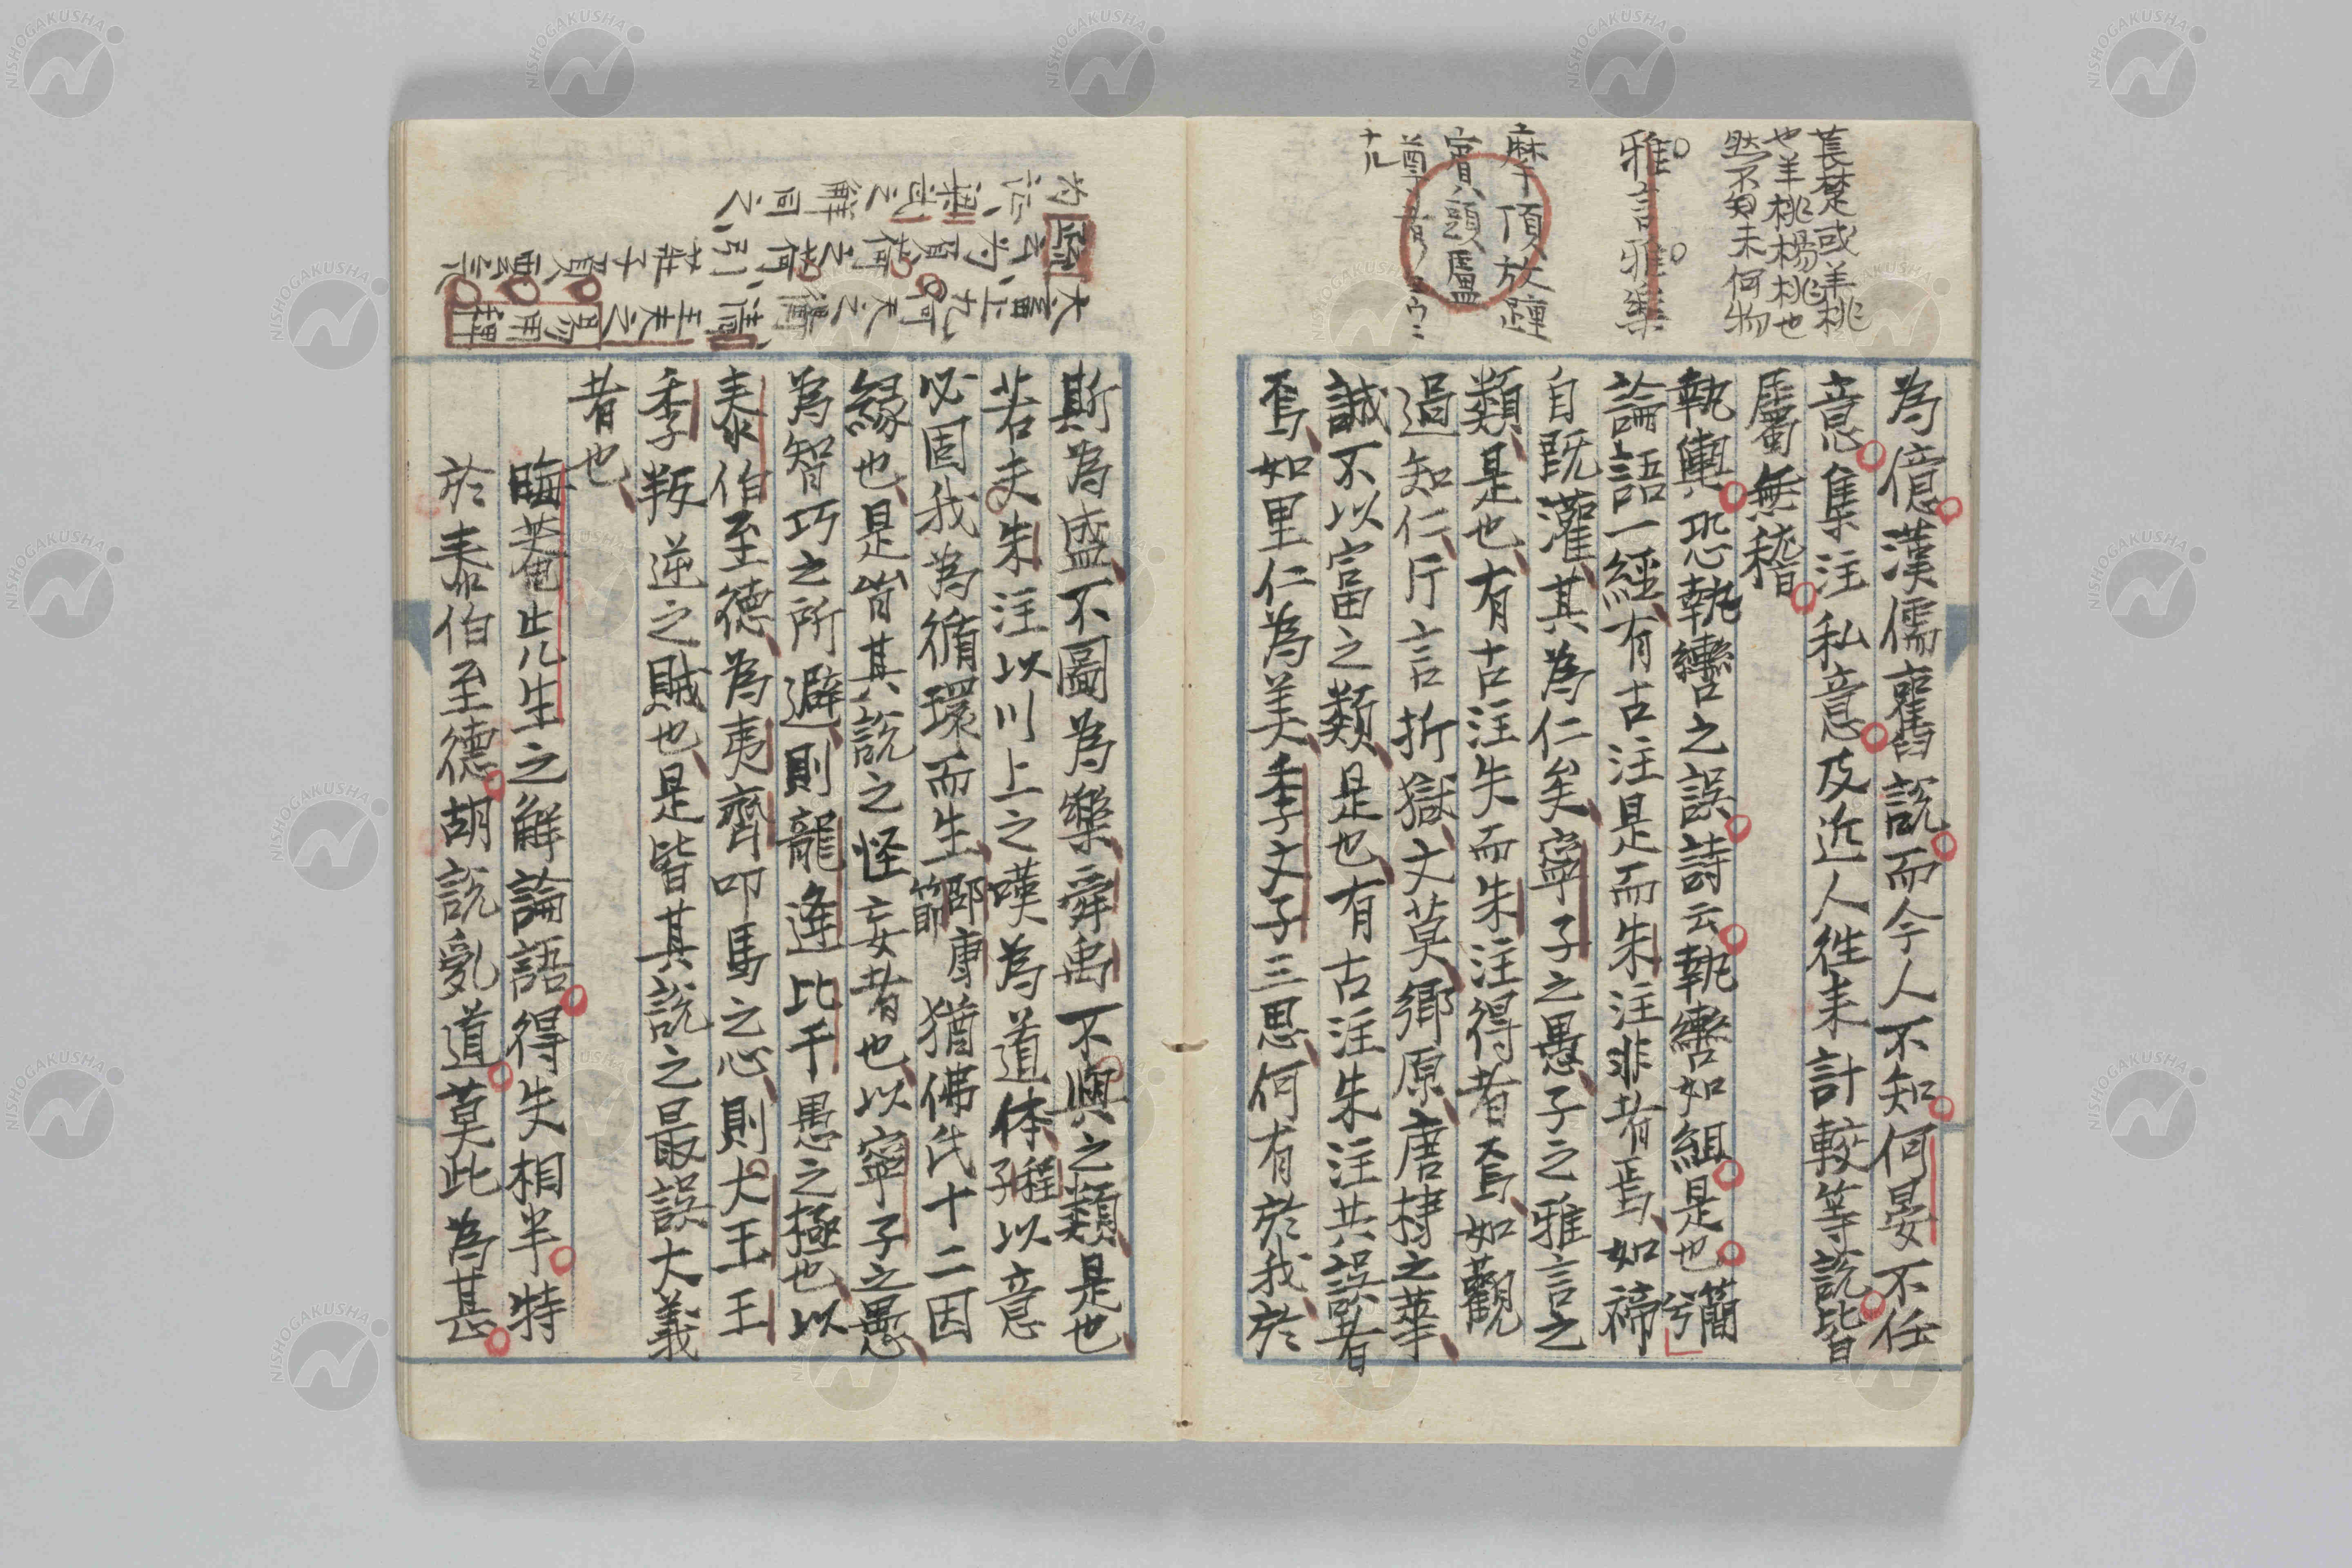 萇楚或羊桃
也羊桃楊桃也
然不知未何物
雅言雅樂
摩頂放踵
賓頭盧
十九
為億漢儒舊說而今人不知何晏不任
意集注私意及近人徃来計較等說皆
屬無稽
執輿恐執轡之誤詩云執轡如組是也簡兮
論語一經有古注是而朱注非者焉如禘
自既灌其為仁矣寧子之愚子之雅言之
類是也有古注失而朱注得者焉如觀
過知仁片言折獄文莫鄉原唐棣之華
誠不以富之類是也有古注朱注共誤者
焉如里仁為美季文子三思何有於我於
斯為盛不圖為樂舜禹不與之類是也
若夫朱注以川上之嘆為道体程子以意
必固我為循環而生邵康節猶佛氏十二因
緣也是皆其說之怪妄者也以寧子之愚
為智巧之所避則龍逄比干愚之極也以
泰伯至德為夷齊叩馬之心則大王王
季叛逆之賊也是皆其說之最誤大義
者也
晦菴先生之解論語得失相半特
於泰伯至德胡說亂道莫此為甚